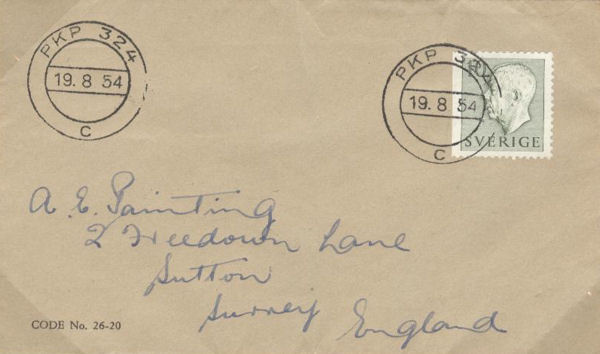 PKP 324
19.8 54
C
PKP 324
19.8 54
C
SVERIGE
A. E. Painting
2 Freedown Lane
Sutton
Surrey
England
CODE No. 26-20